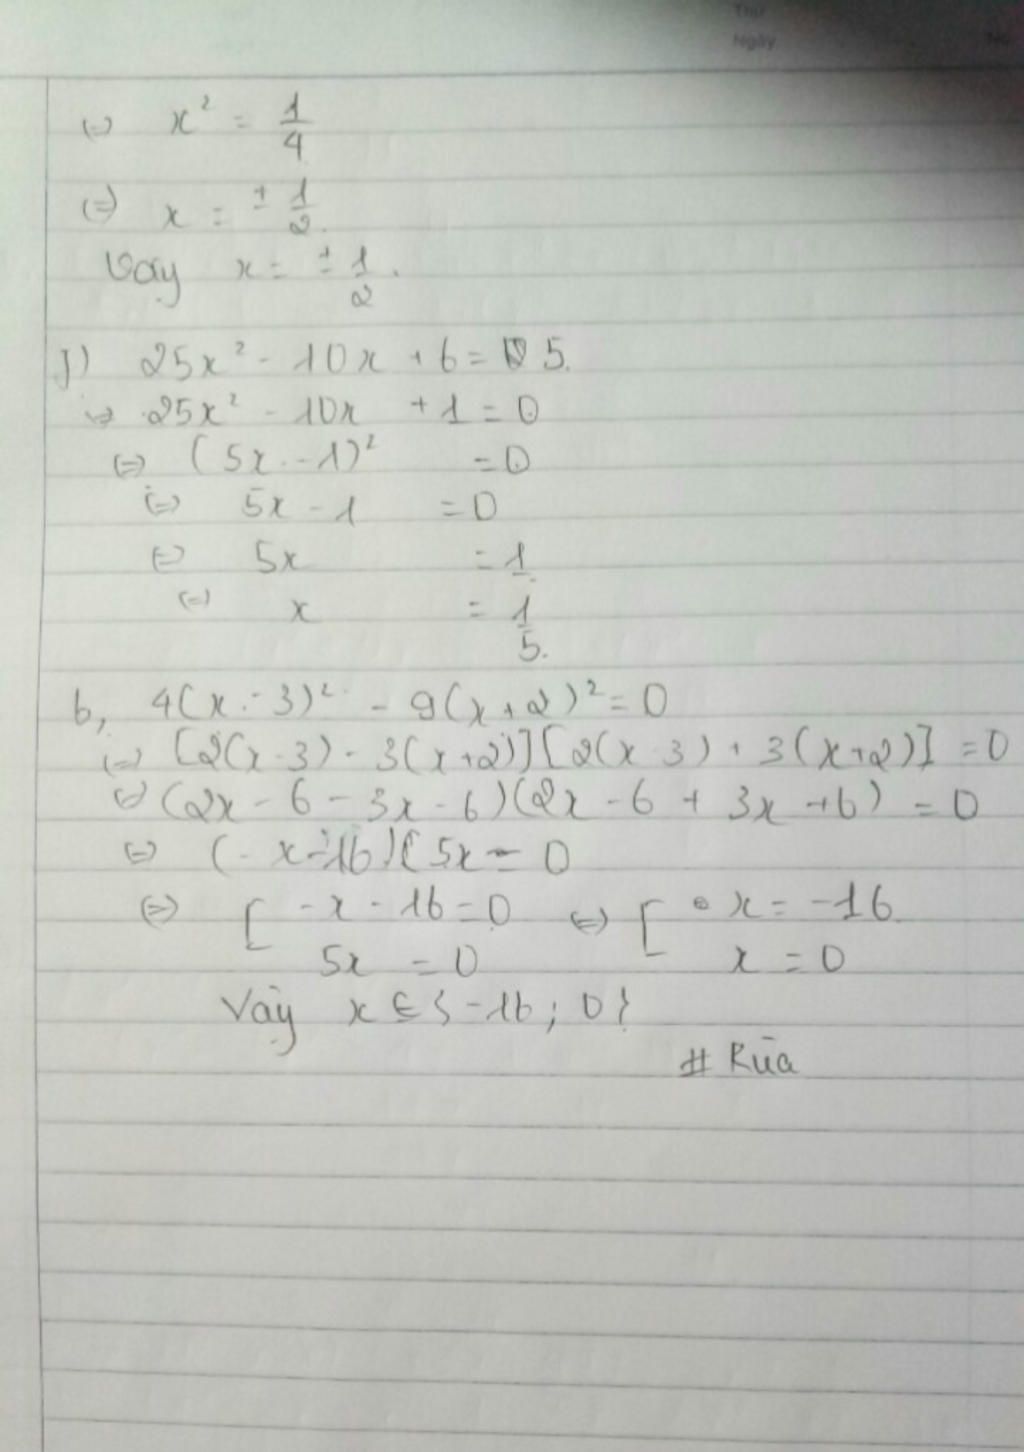 Thứ
Ngày
No
(=) x² = 1/4
(=) x = ± 1/2.
Vậy x = ± 1/2.
J) 25x² - 10x + 6 = 5.
(=) 25x² - 10x + 1 = 0
(=) (5x - 1)² = 0
(=) 5x - 1 = 0
(=) 5x = 1
(=) x = 1/5.
b, 4(x - 3)² - 9(x + 2)² = 0
(=) [2(x - 3) - 3(x + 2)][2(x - 3) + 3(x + 2)] = 0
(=) (2x - 6 - 3x - 6)(2x - 6 + 3x + 6) = 0
(=) (- x - 16)(5x = 0
(=) [ -x - 16 = 0 (=) [ x = -16
5x = 0 x = 0
Vậy x ∈ {-16; 0}
# Rùa